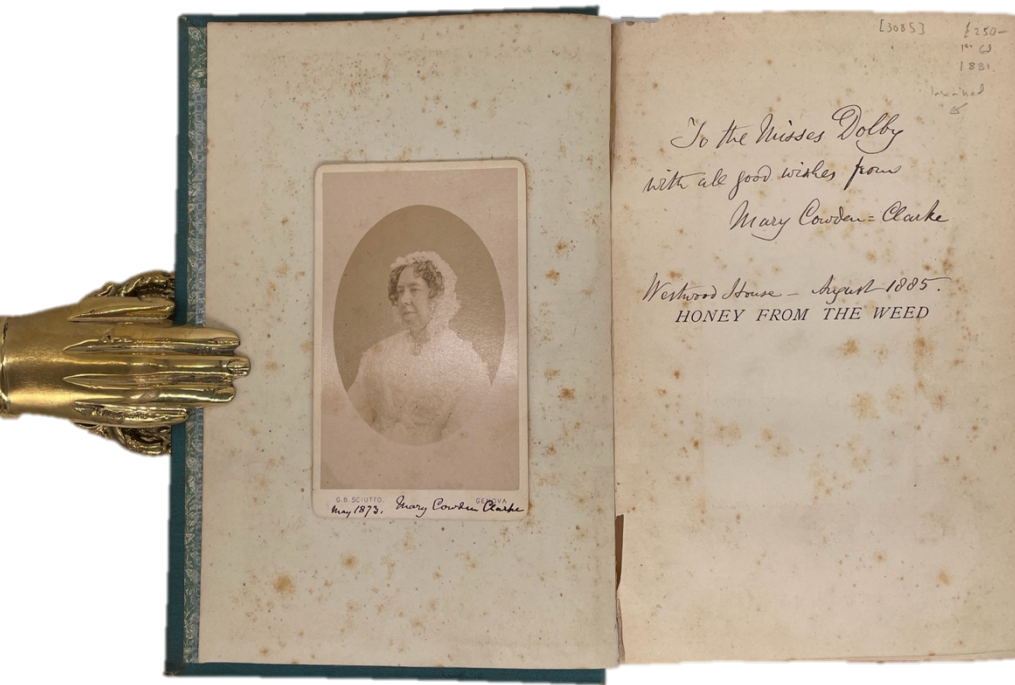 G. B. SCIUTTO. GENOVA
May 1873. Mary Cowden Clarke
[3085] £250-
1st Ed
1881
To the Misses Dolby
with all good wishes from
Mary Cowden=Clarke
Westwood House – August 1885.
HONEY FROM THE WEED